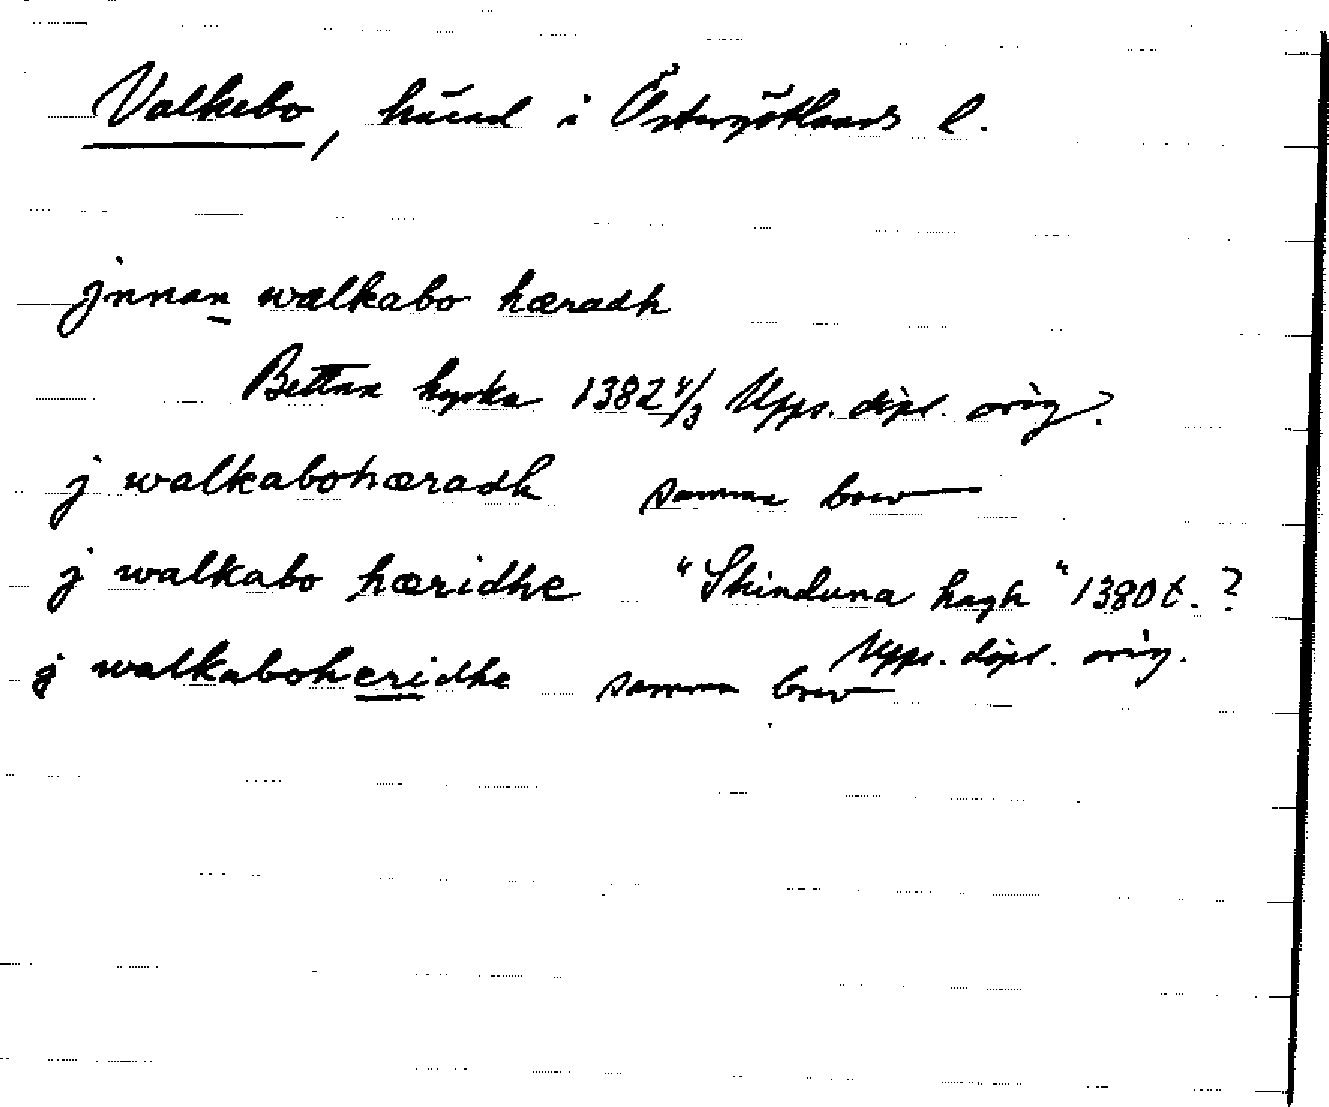 Valkebo, härad i Östergötlands l.
jnnan walkabo hæradh
Bettna kyrka 1382 4/3 Upps. dipl. orig.
j walkabohæradh samma brev
j walkabo hæridhe "Skinduna hagh" 1380 t. ?
Upps. dipl. orig.
j walkaboheridhe samma brev